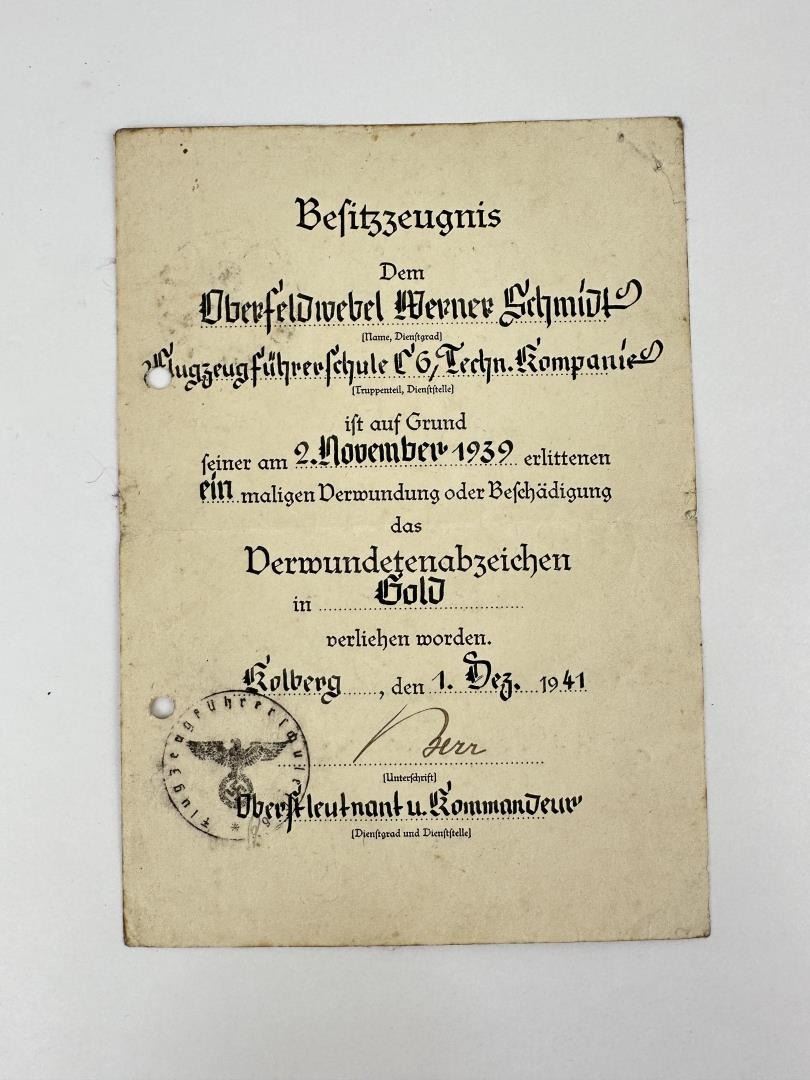 Beſitzzeugnis
Dem
Oberfeldwebel Werner Schmidt
(Name, Dienſtgrad)
Flugzeugführerschule C 6, Techn. Kompanie
(Truppenteil, Dienſtſtelle)
iſt auf Grund
ſeiner am 2. November 1939 erlittenen
ein maligen Verwundung oder Beſchädigung
das
Verwundetenabzeichen
in Gold
verliehen worden.
Kolberg, den 1. Dez. 1941
(Unterſchrift)
Oberstleutnant u. Kommandeur
(Dienſtgrad und Dienſtſtelle)
Flugzeugführerſchule